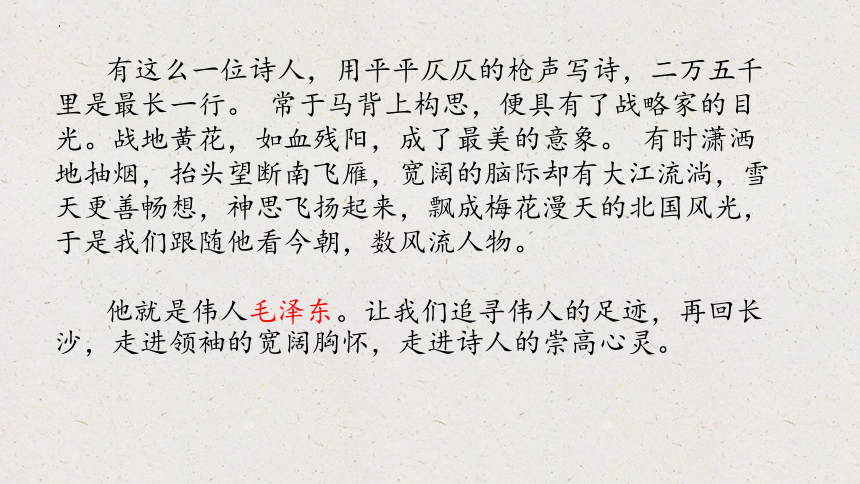 有这么一位诗人，用平平仄仄的枪声写诗，二万五千
里是最长一行。 常于马背上构思，便具有了战略家的目
光。战地黄花，如血残阳，成了最美的意象。 有时潇洒
地抽烟，抬头望断南飞雁，宽阔的脑际却有大江流淌，雪
天更善畅想，神思飞扬起来，飘成梅花漫天的北国风光，
于是我们跟随他看今朝，数风流人物。
他就是伟人毛泽东。让我们追寻伟人的足迹，再回长
沙，走进领袖的宽阔胸怀，走进诗人的崇高心灵。